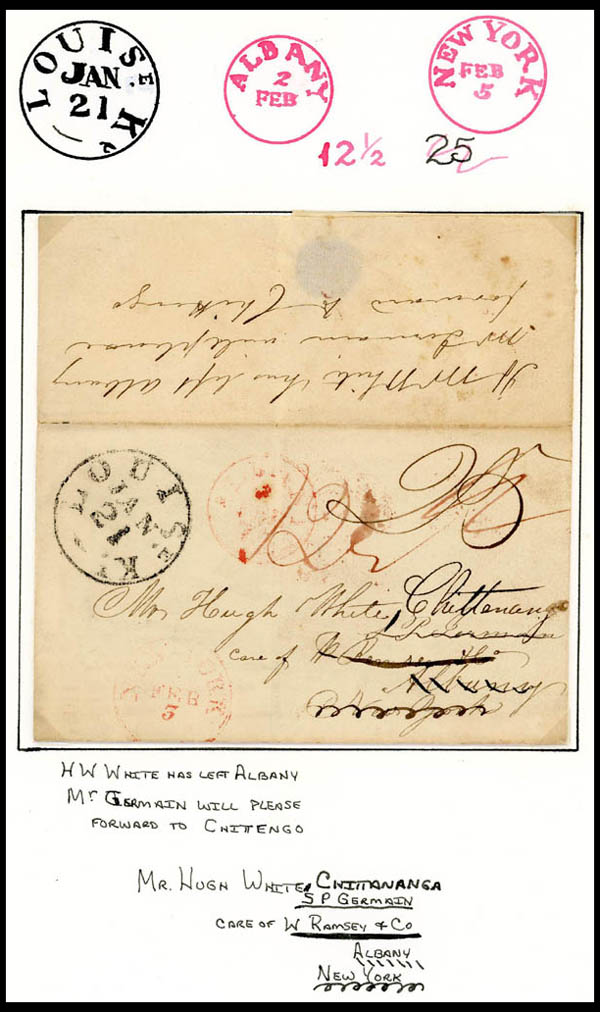 LOUISE KY
JAN.
21
ALBANY
2
FEB
NEW YORK
FEB
5
12 1/2
25
If Mr White has left Albany
Mr Germain will please
forward to Chittengo
LOUISE KY
JAN
21
Mr Hugh White, Chittenango
care of W Ramsey & Co
Albany
YORK
FEB
5
H W WHITE HAS LEFT ALBANY
Mr GERMAIN WILL PLEASE
FORWARD TO CHITTENGO
MR. HUGH WHITE, CHITTANANGA
S P GERMAIN
CARE OF W RAMSEY & CO
ALBANY
NEW YORK